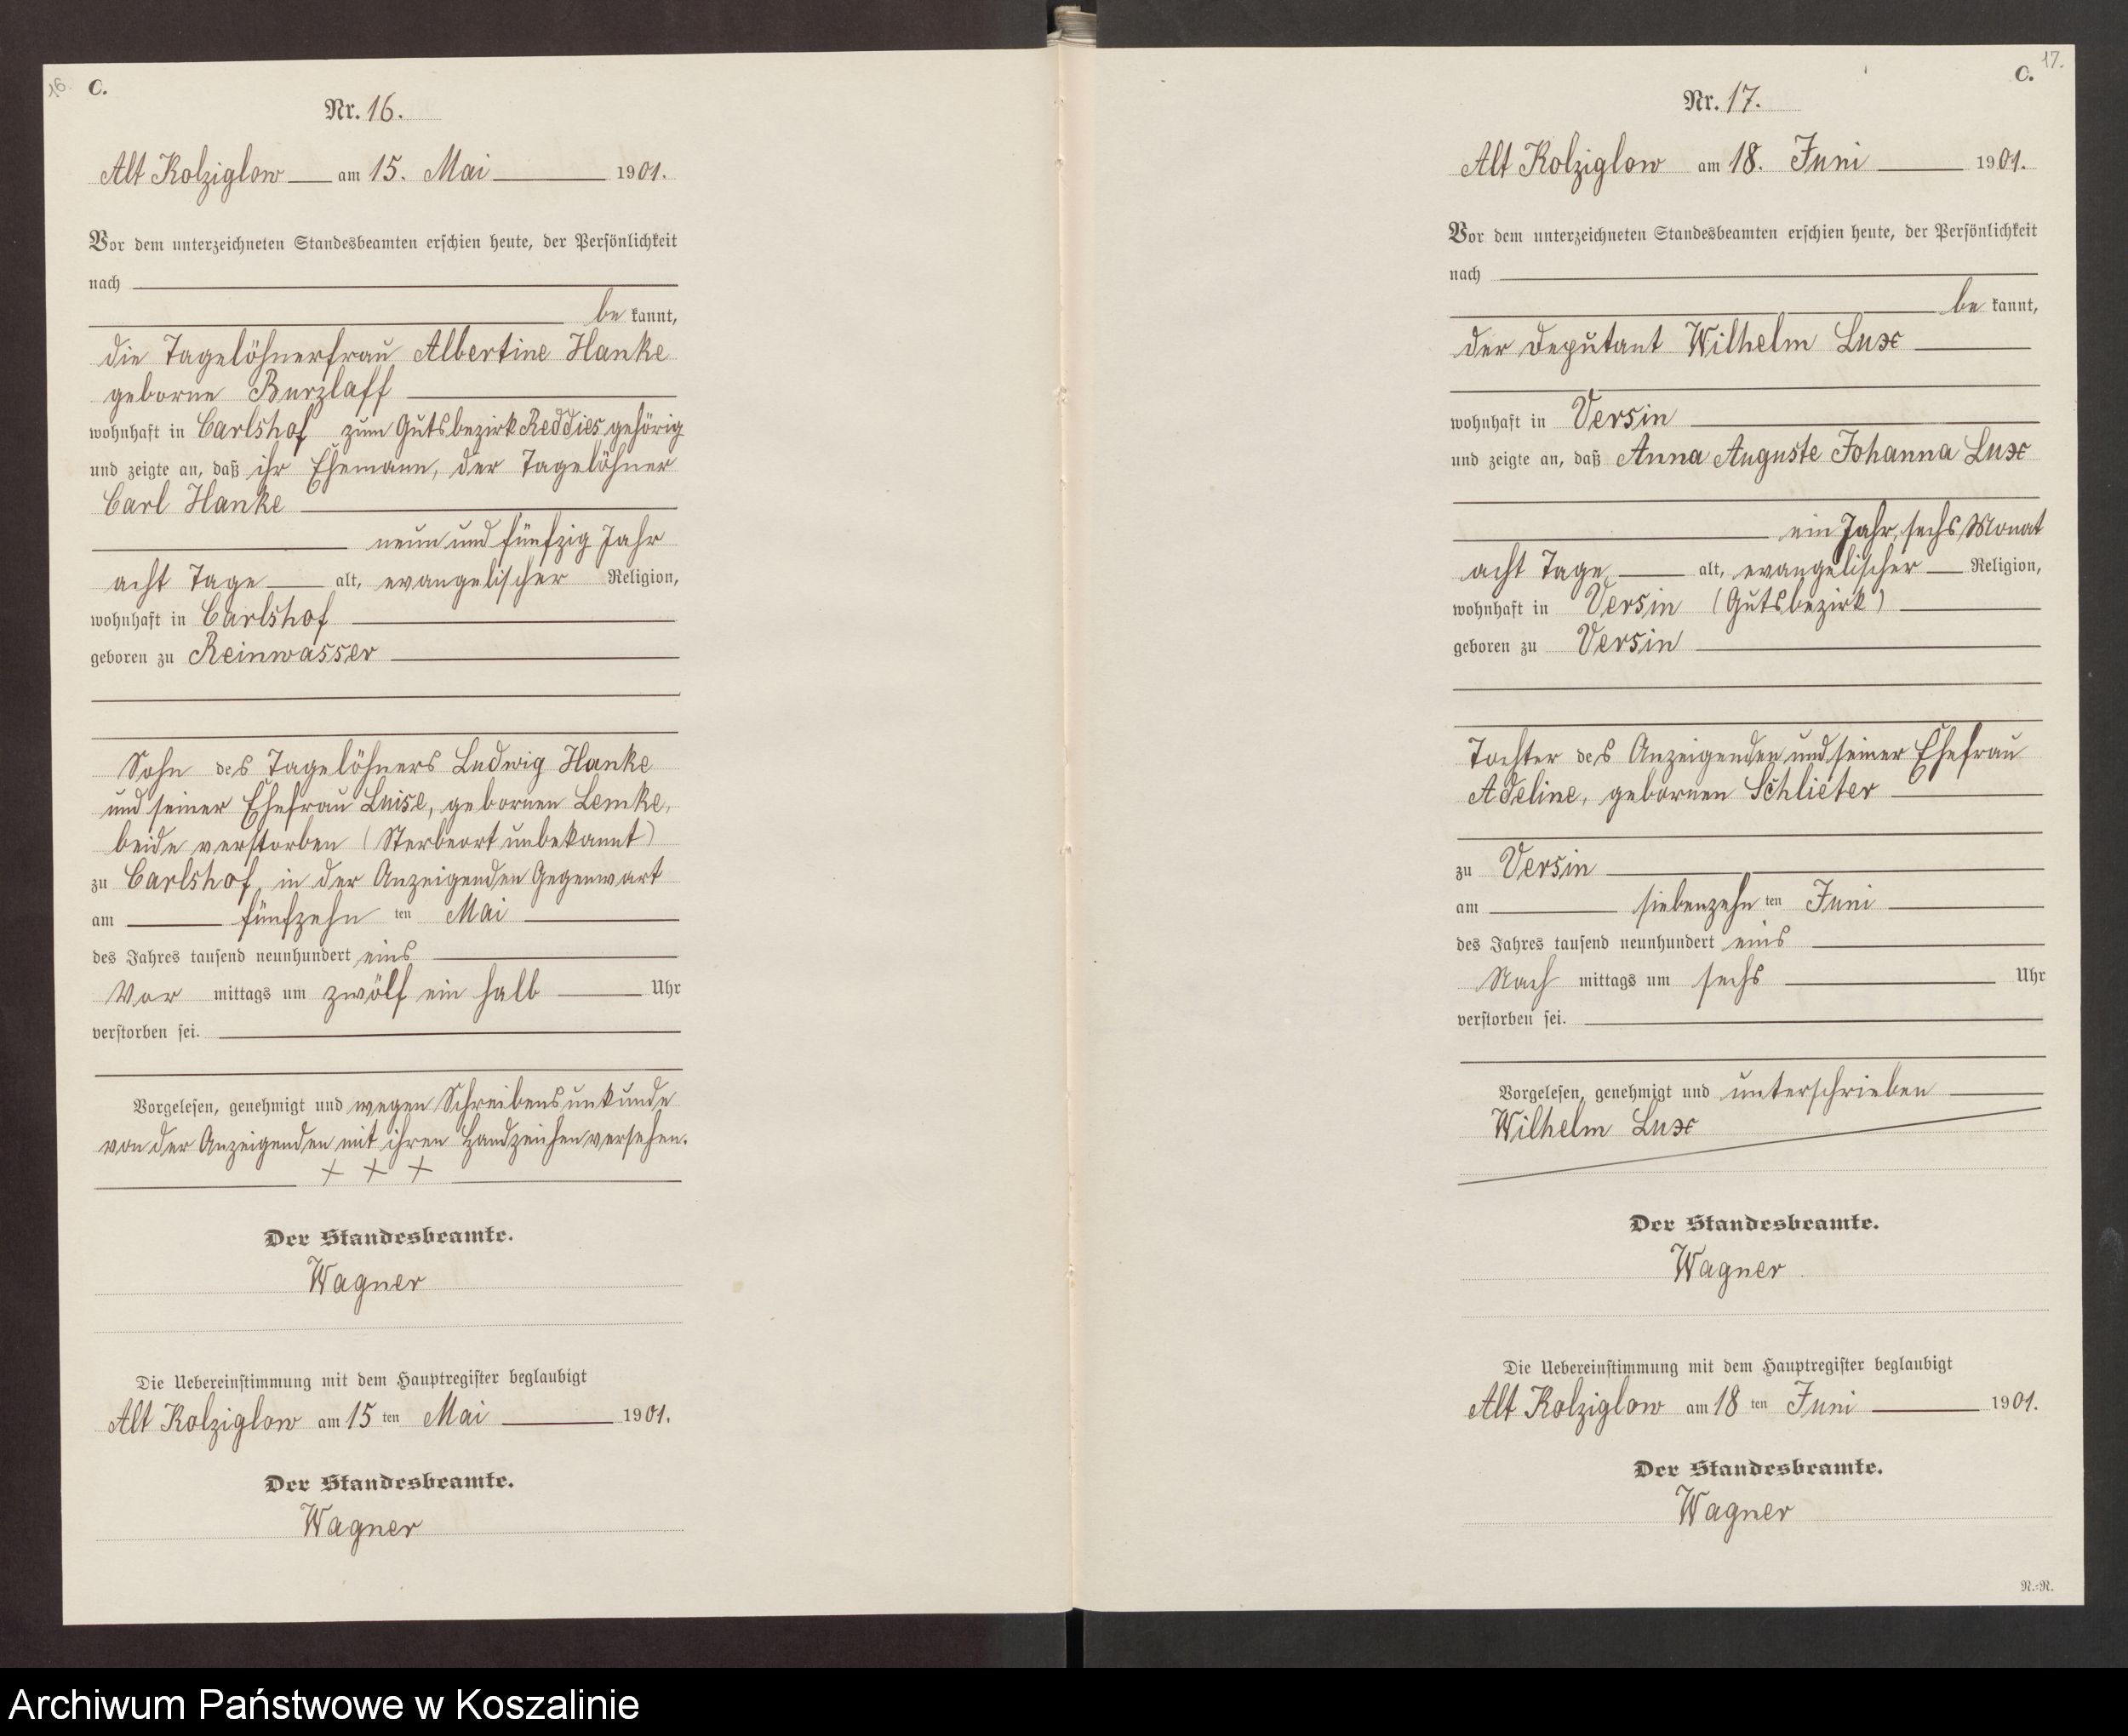 16.
C.
Nr. 16.
Alt Kolziglow am 15. Mai 1901.
Vor dem unterzeichneten Standesbeamten erschien heute, der Persönlichkeit
nach
be kannt,
die Tagelöhnerfrau Albertine Hanke
geborne Burzlaff
wohnhaft in Carlshof zum Gutsbezirk Reddies gehörig
und zeigte an, daß ihr Ehemann, der Tagelöhner
Carl Hanke
neun und fünfzig Jahr
acht Tage alt, evangelischer Religion,
wohnhaft in Carlshof
geboren zu Reinwasser
Sohn des Tagelöhners Ludwig Hanke
und seiner Ehefrau Luise, gebornen Lemke,
beide verstorben (Sterbeort unbekannt)
zu Carlshof, in der Anzeigenden Gegenwart
am fünfzehn ten Mai
des Jahres tausend neunhundert eins
Vor mittags um zwölf ein halb Uhr
verstorben sei.
Vorgelesen, genehmigt und wegen Schreibensunkunde
von der Anzeigenden mit ihren Handzeichen versehen.
+ + +
Der Standesbeamte.
Wagner
Die Uebereinstimmung mit dem Hauptregister beglaubigt
Alt Kolziglow am 15 ten Mai 1901.
Der Standesbeamte.
Wagner
17.
C.
Nr. 17.
Alt Kolziglow am 18. Juni 1901.
Vor dem unterzeichneten Standesbeamten erschien heute, der Persönlichkeit
nach
be kannt,
der Deputant Wilhelm Lux
wohnhaft in Versin
und zeigte an, daß Anna Auguste Johanna Lux
ein Jahr, sechs Monat
acht Tage alt, evangelischer Religion,
wohnhaft in Versin (Gutsbezirk)
geboren zu Versin
Tochter des Anzeigenden und seiner Ehefrau
Adeline, gebornen Schlieter
zu Versin
am siebenzehn ten Juni
des Jahres tausend neunhundert eins
Nach mittags um sechs Uhr
verstorben sei.
Vorgelesen, genehmigt und unterschrieben
Wilhelm Lux
Der Standesbeamte.
Wagner
Die Uebereinstimmung mit dem Hauptregister beglaubigt
Alt Kolziglow am 18 ten Juni 1901.
Der Standesbeamte.
Wagner
N.-R.
Archiwum Państwowe w Koszalinie